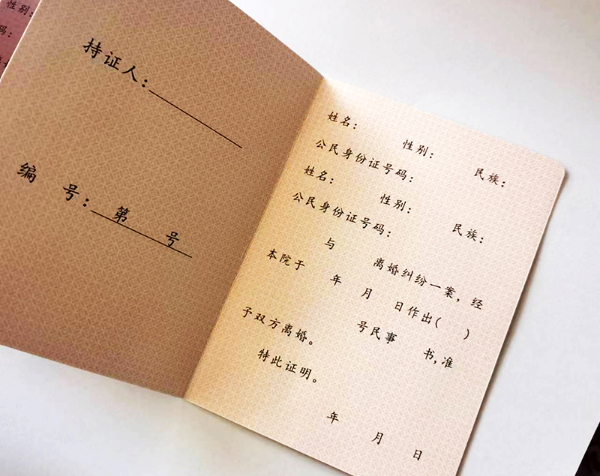 性别:
码:
持证人:
编 号: 第 号
姓名: 性别: 民族:
公民身份证号码:
姓名: 性别: 民族:
公民身份证号码:
与 离婚纠纷一案,经
本院于 年 月 日作出( )
号民事 书,准
予双方离婚。
特此证明。
年 月 日